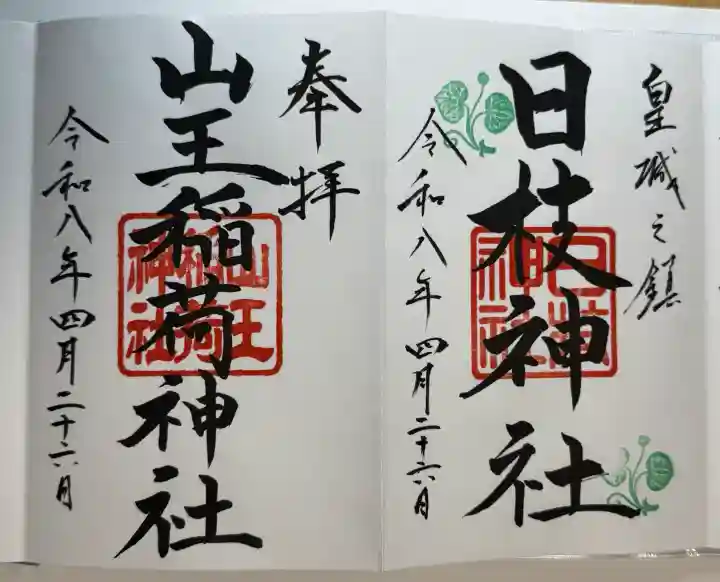 皇城之鎮
日枝神社
日枝神社
令和八年四月二十六日
奉拝
山王稲荷神社
山王稲荷神社
令和八年四月二十六日